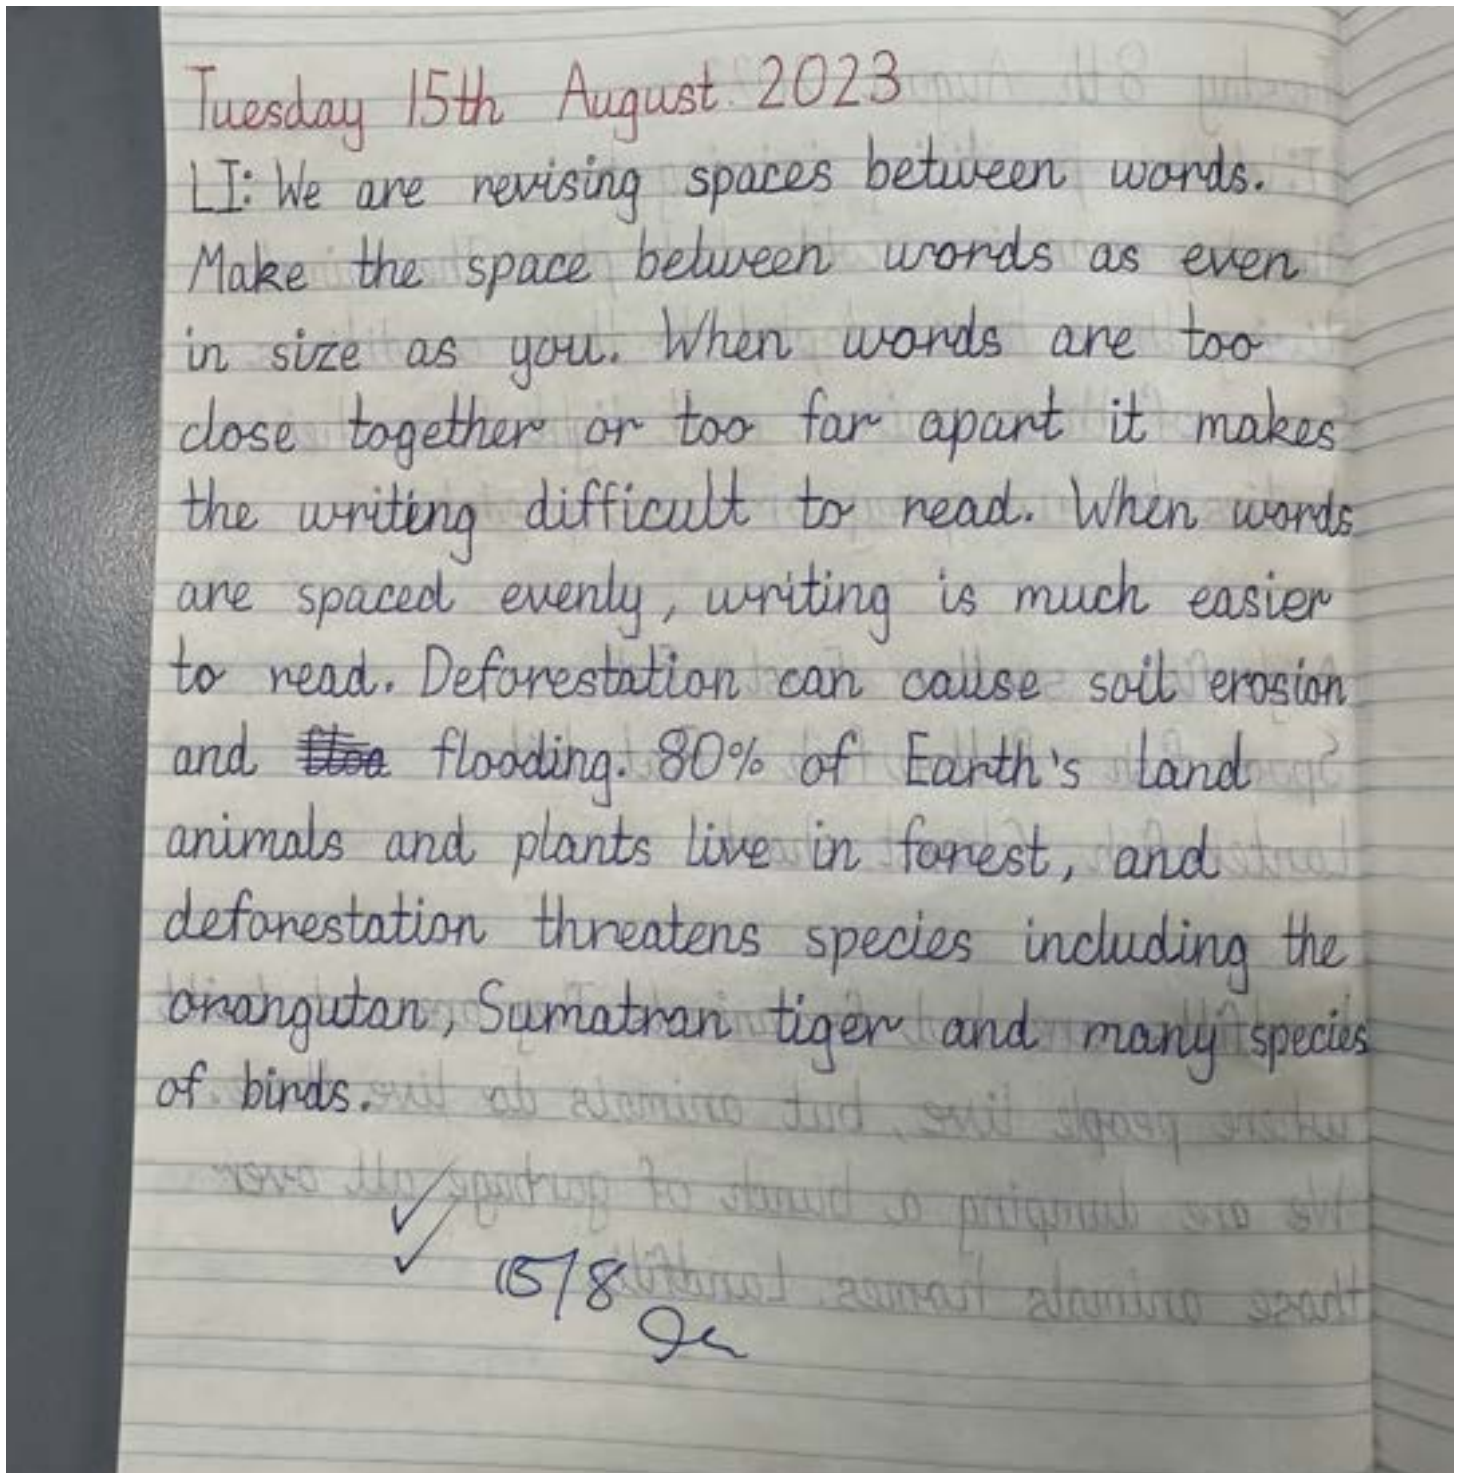 Tuesday 15th August 2023
LI: We are revising spaces between words.
Make the space between words as even
in size as you. When words are too
close together or too far apart it makes
the writing difficult to read. When words
are spaced evenly, writing is much easier
to read. Deforestation can cause soil erosion
and floo flooding. 80% of Earth's land
animals and plants live in forest, and
deforestation threatens species including the
orangutan, Sumatran tiger and many species
of birds.
15/8